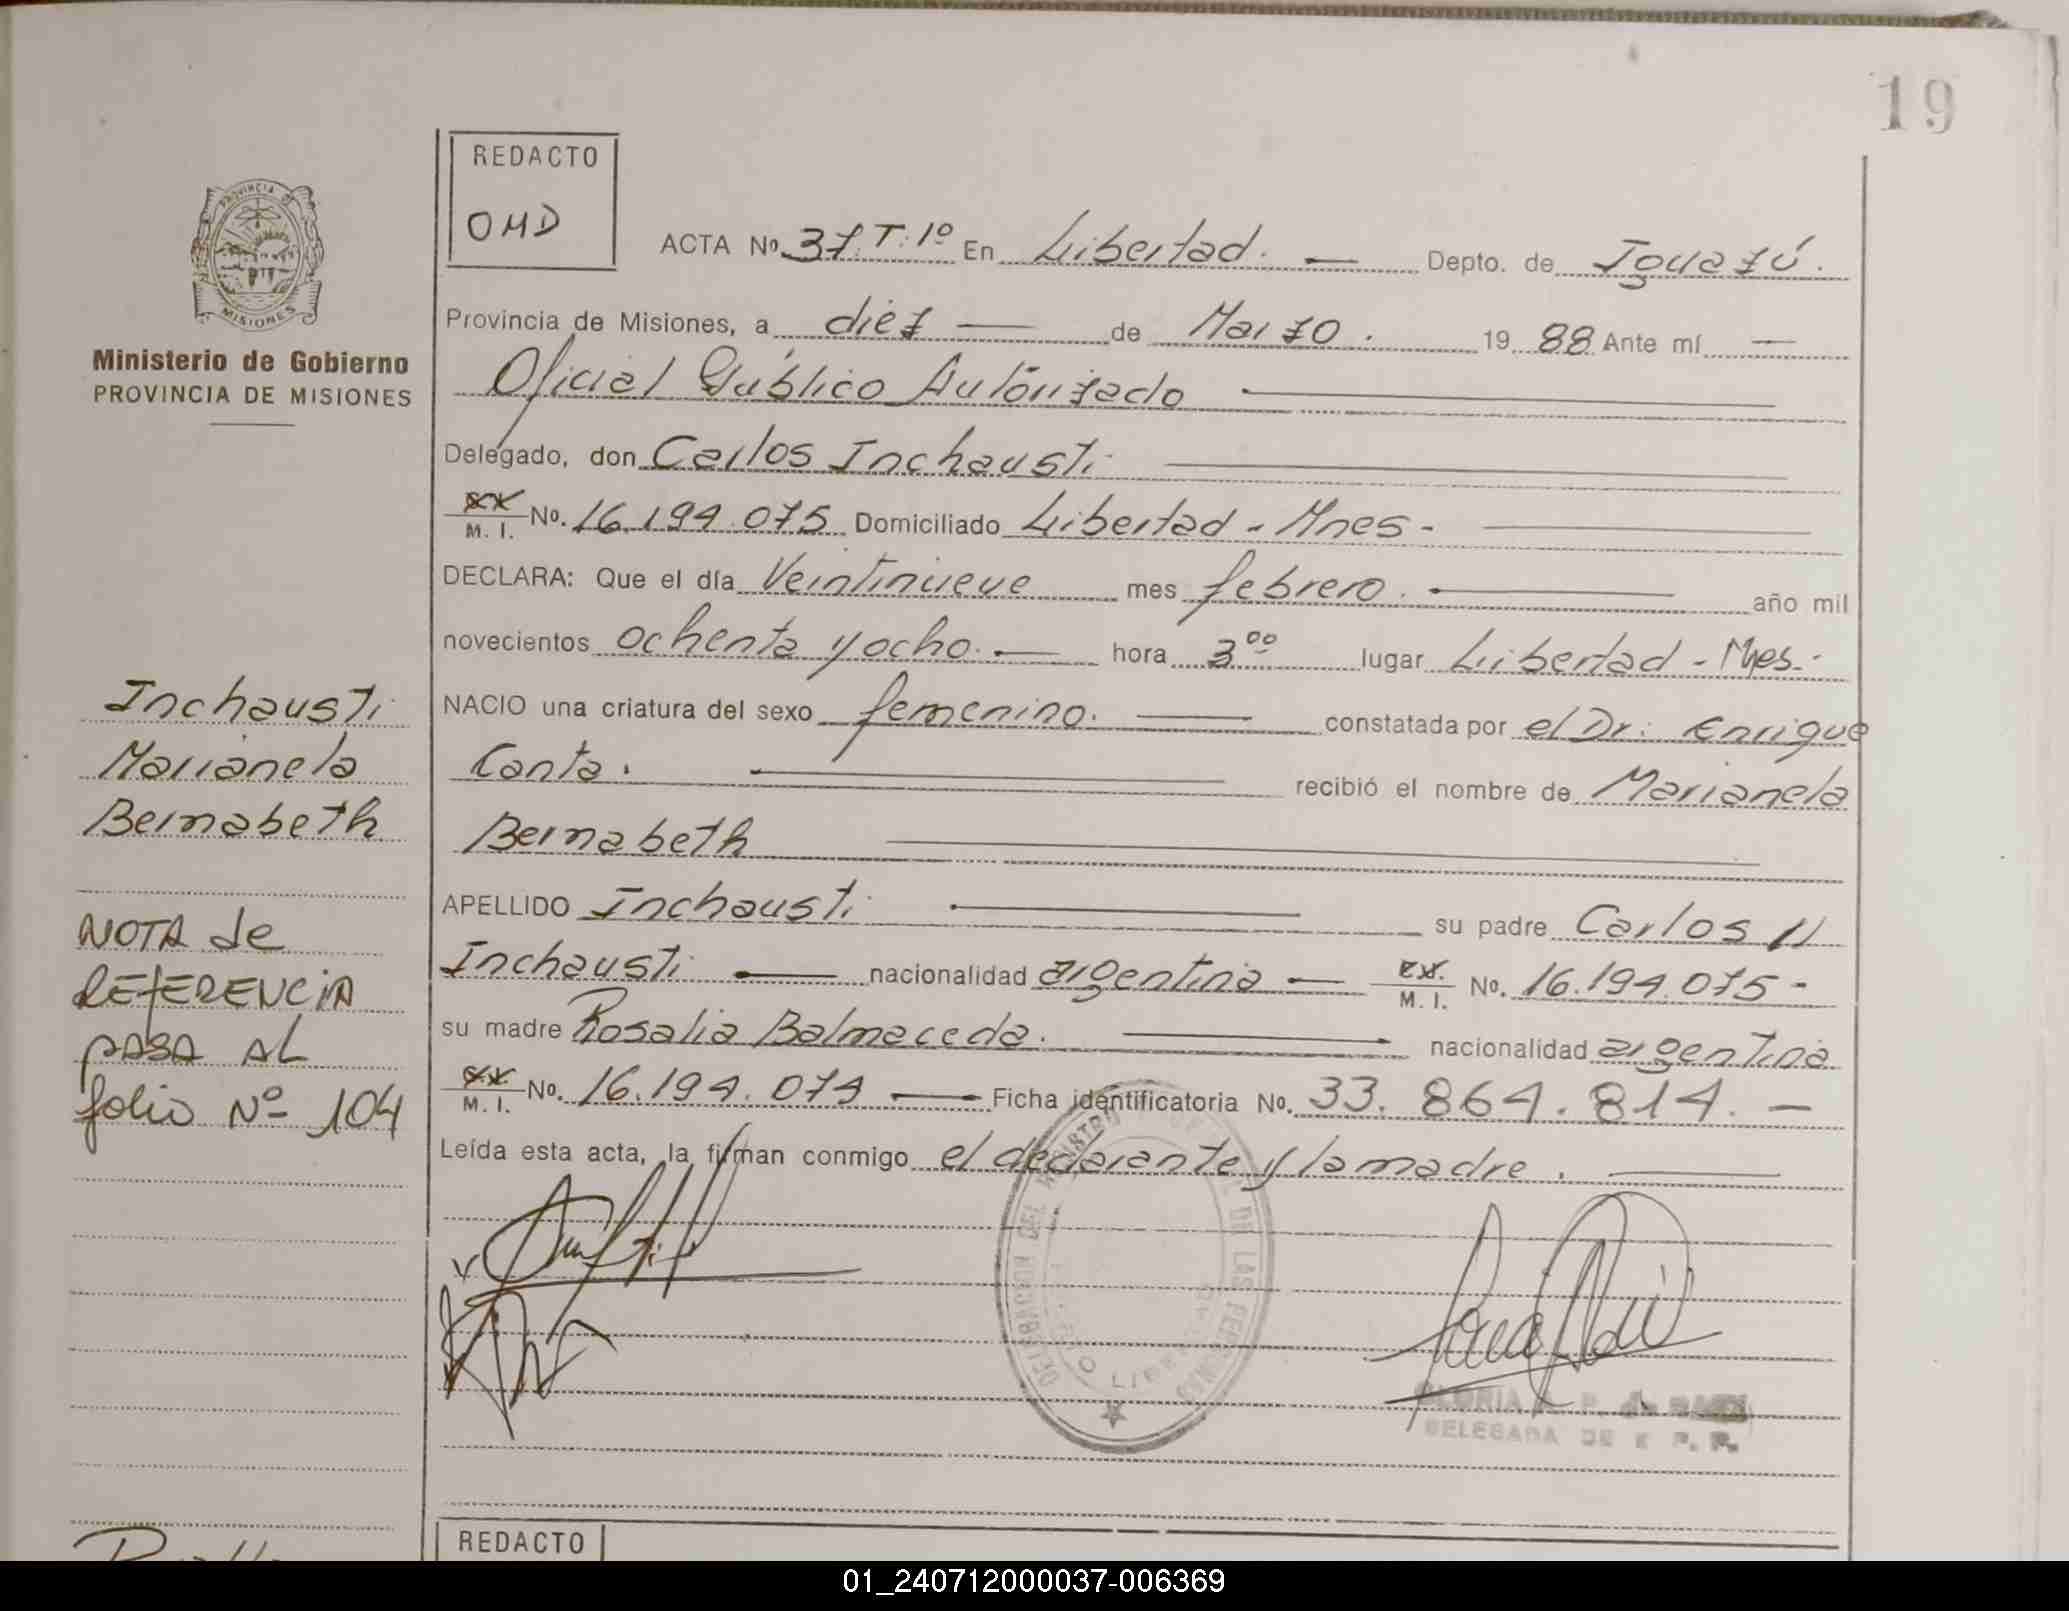 19
REDACTO
OMD
ACTA Nº 37. T: 1º En Libertad. — Depto. de Iguazú.
PROVINCIA DE
MISIONES
Ministerio de Gobierno
PROVINCIA DE MISIONES
Provincia de Misiones, a diez — de Marzo. 1988 Ante mí —
Oficial Público Autorizado
Delegado, don Carlos Inchausti
M. I. No. 16.194.075 Domiciliado Libertad - Mnes -
DECLARA: Que el día Veintinueve mes febrero. — año mil
novecientos ochenta y ocho. — hora 3 00 lugar Libertad - Mnes.-
NACIO una criatura del sexo femenino. — constatada por el Dr: Enrique
Canta. — recibió el nombre de Marianela
Bernabeth
APELLIDO Inchausti — su padre Carlos //
Inchausti — nacionalidad argentina — M. I. No. 16.194.075 -
su madre Rosalia Balmaceda. — nacionalidad argentina
M. I. No. 16.194.074 — Ficha identificatoria No. 33.864.814. —
Leída esta acta, la firman conmigo el declarante y la madre. —
Inchausti
Marianela
Bernabeth
NOTA de
REFERENCIA
PASA AL
folio Nº 104
DE LAS PERSONAS
GLORIA A. P. de
DELEGADA DE R P. P.
REDACTO
01_240712000037-006369